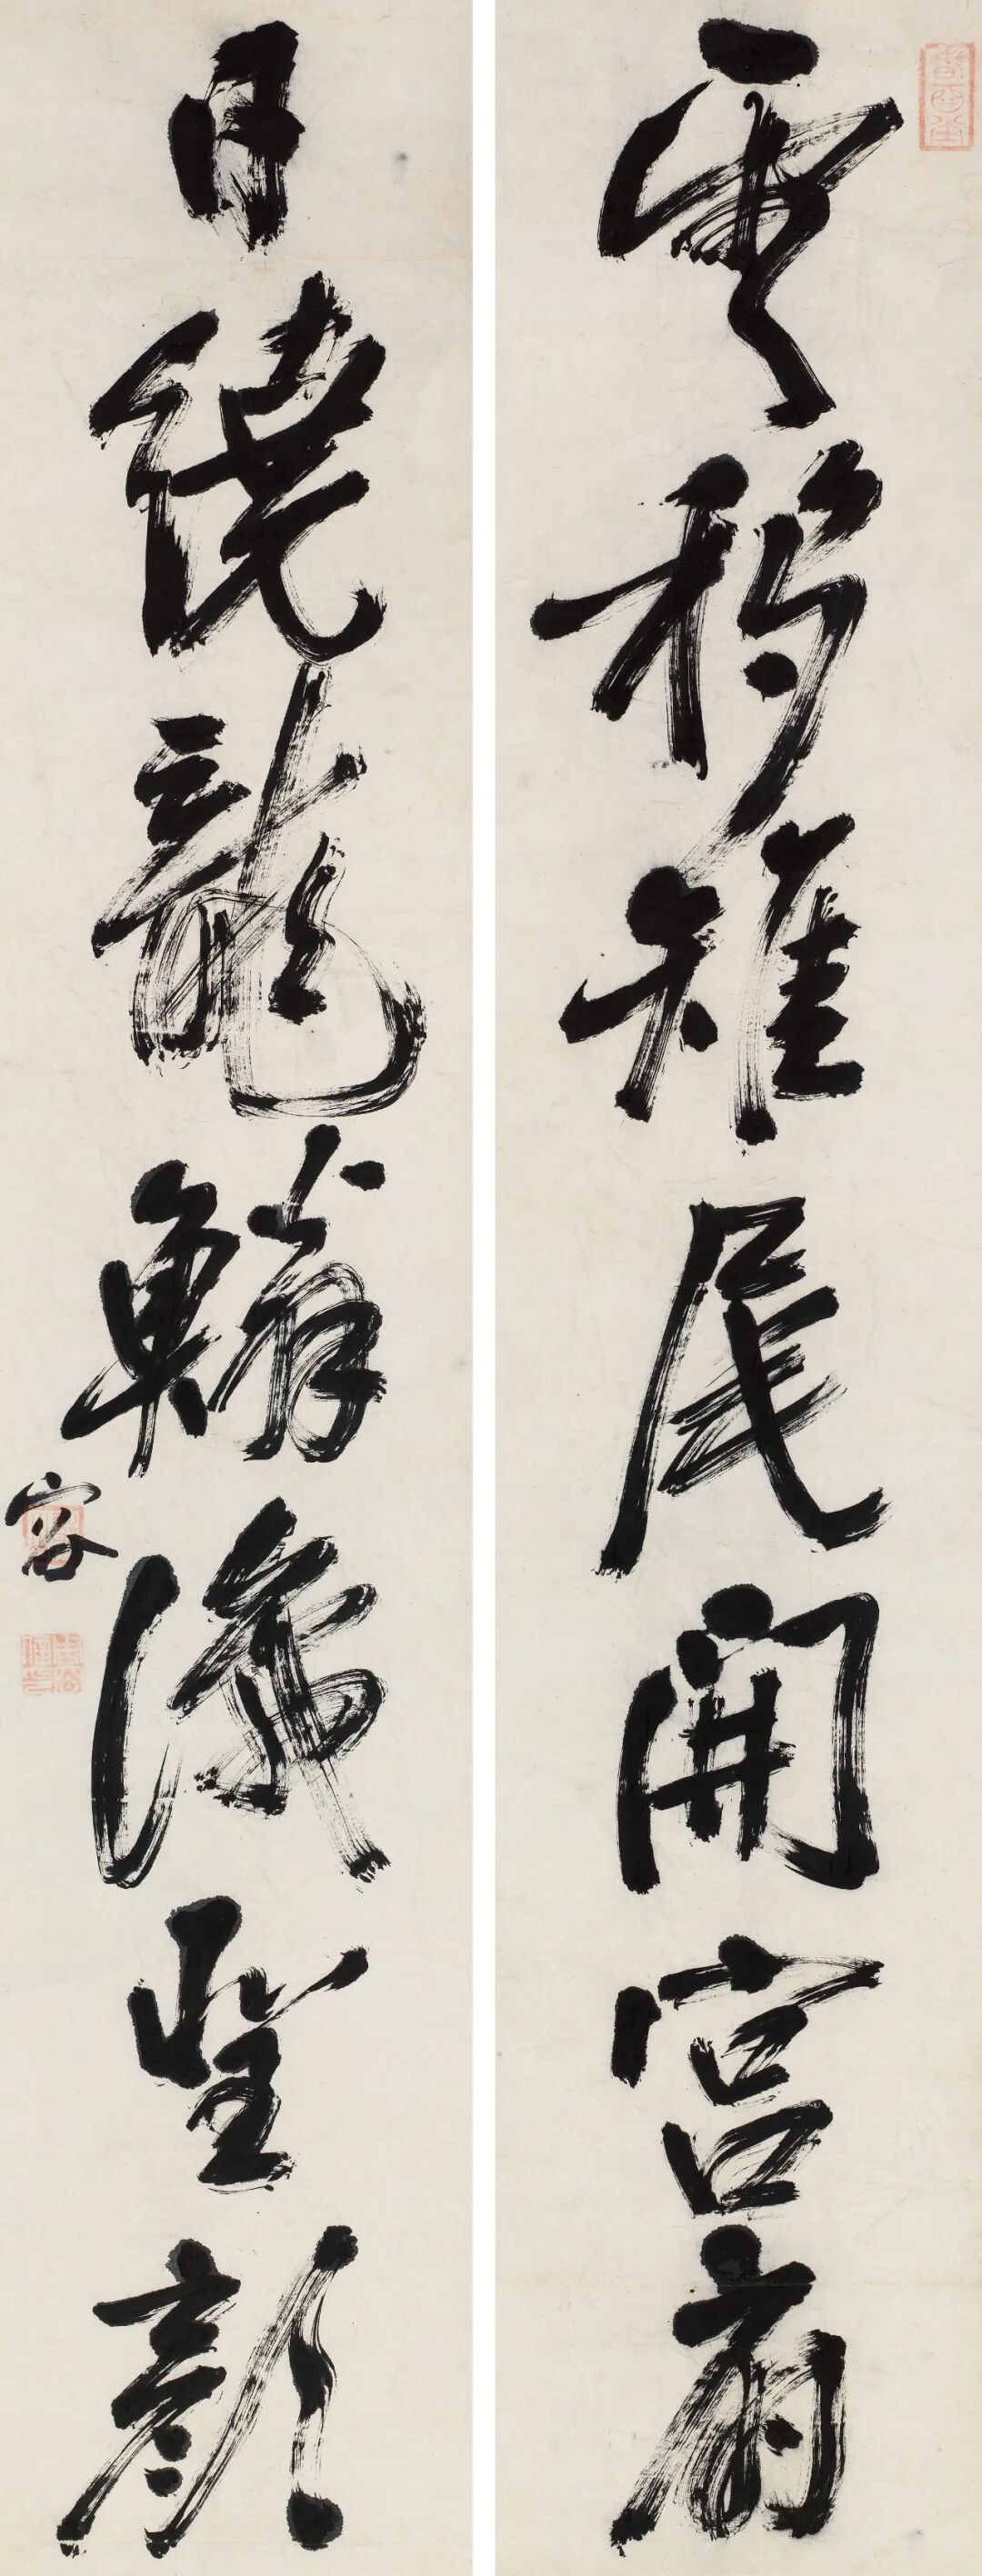 雲移雉尾開宮扇
日繞龍鱗識聖顏
容